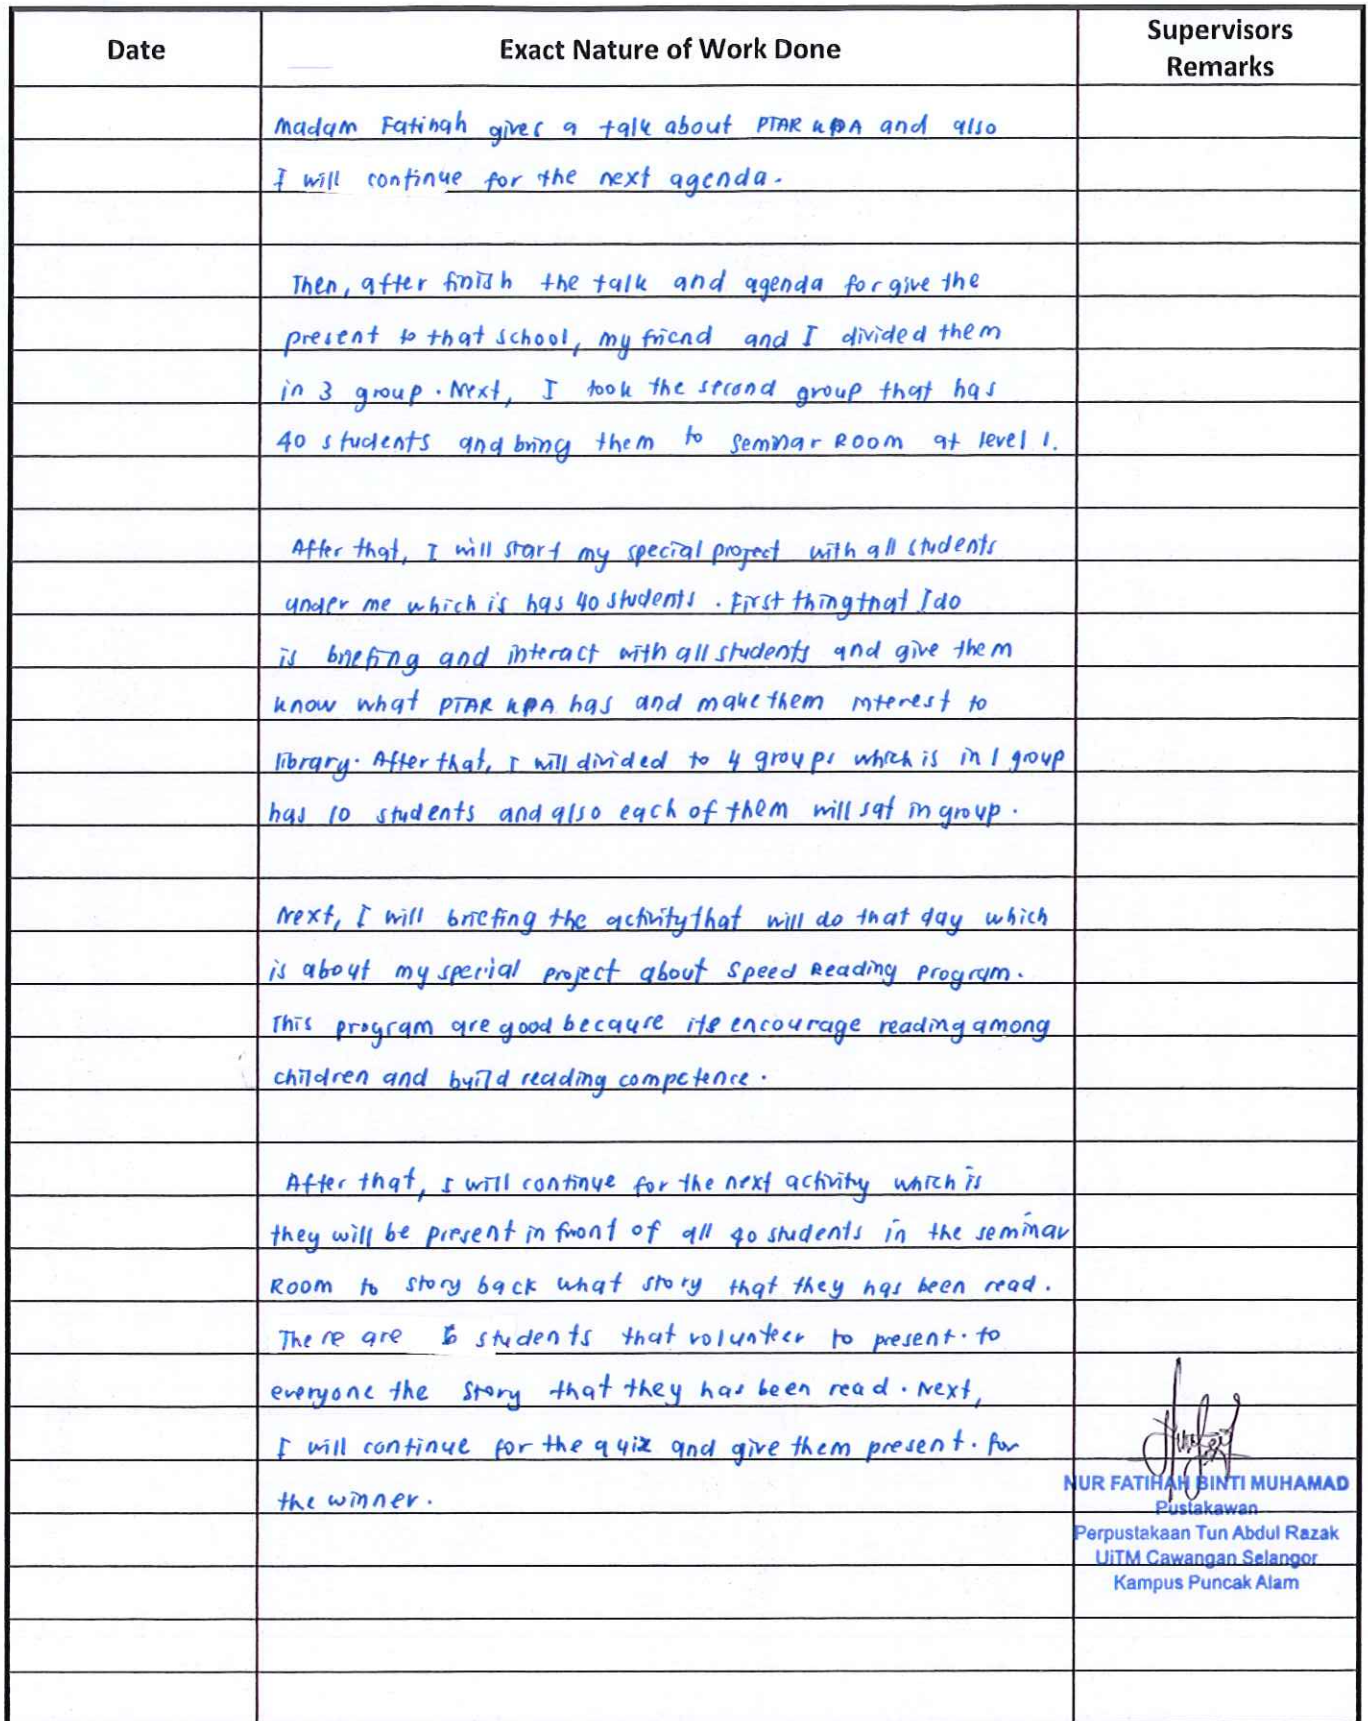 Date
Exact Nature of Work Done
Supervisors
Remarks
Madam Fatihah gives a talk about PTAR KPA and also
I will continue for the next agenda.
Then, after finish the talk and agenda for give the
present to that school, my friend and I divided them
in 3 group. Next, I took the second group that has
40 students and bring them to Seminar Room at level 1.
After that, I will start my special project with all students
under me which is has 40 students. First thing that I do
is briefing and interact with all students and give them
know what PTAR KPA has and make them interest to
library. After that, I will divided to 4 groups which is in 1 group
has 10 students and also each of them will sat in group.
Next, I will briefing the activity that will do that day which
is about my special project about Speed Reading Program.
This program are good because its encourage reading among
children and build reading competence.
After that, I will continue for the next activity which is
they will be present in front of all 40 students in the seminar
Room to story back what story that they has been read.
There are students that volunteer to present. to
everyone the story that they has been read. Next,
I will continue for the quiz and give them present. for
the winner.
NUR FATIHAH BINTI MUHAMAD
Pustakawan
Perpustakaan Tun Abdul Razak
UiTM Cawangan Selangor
Kampus Puncak Alam